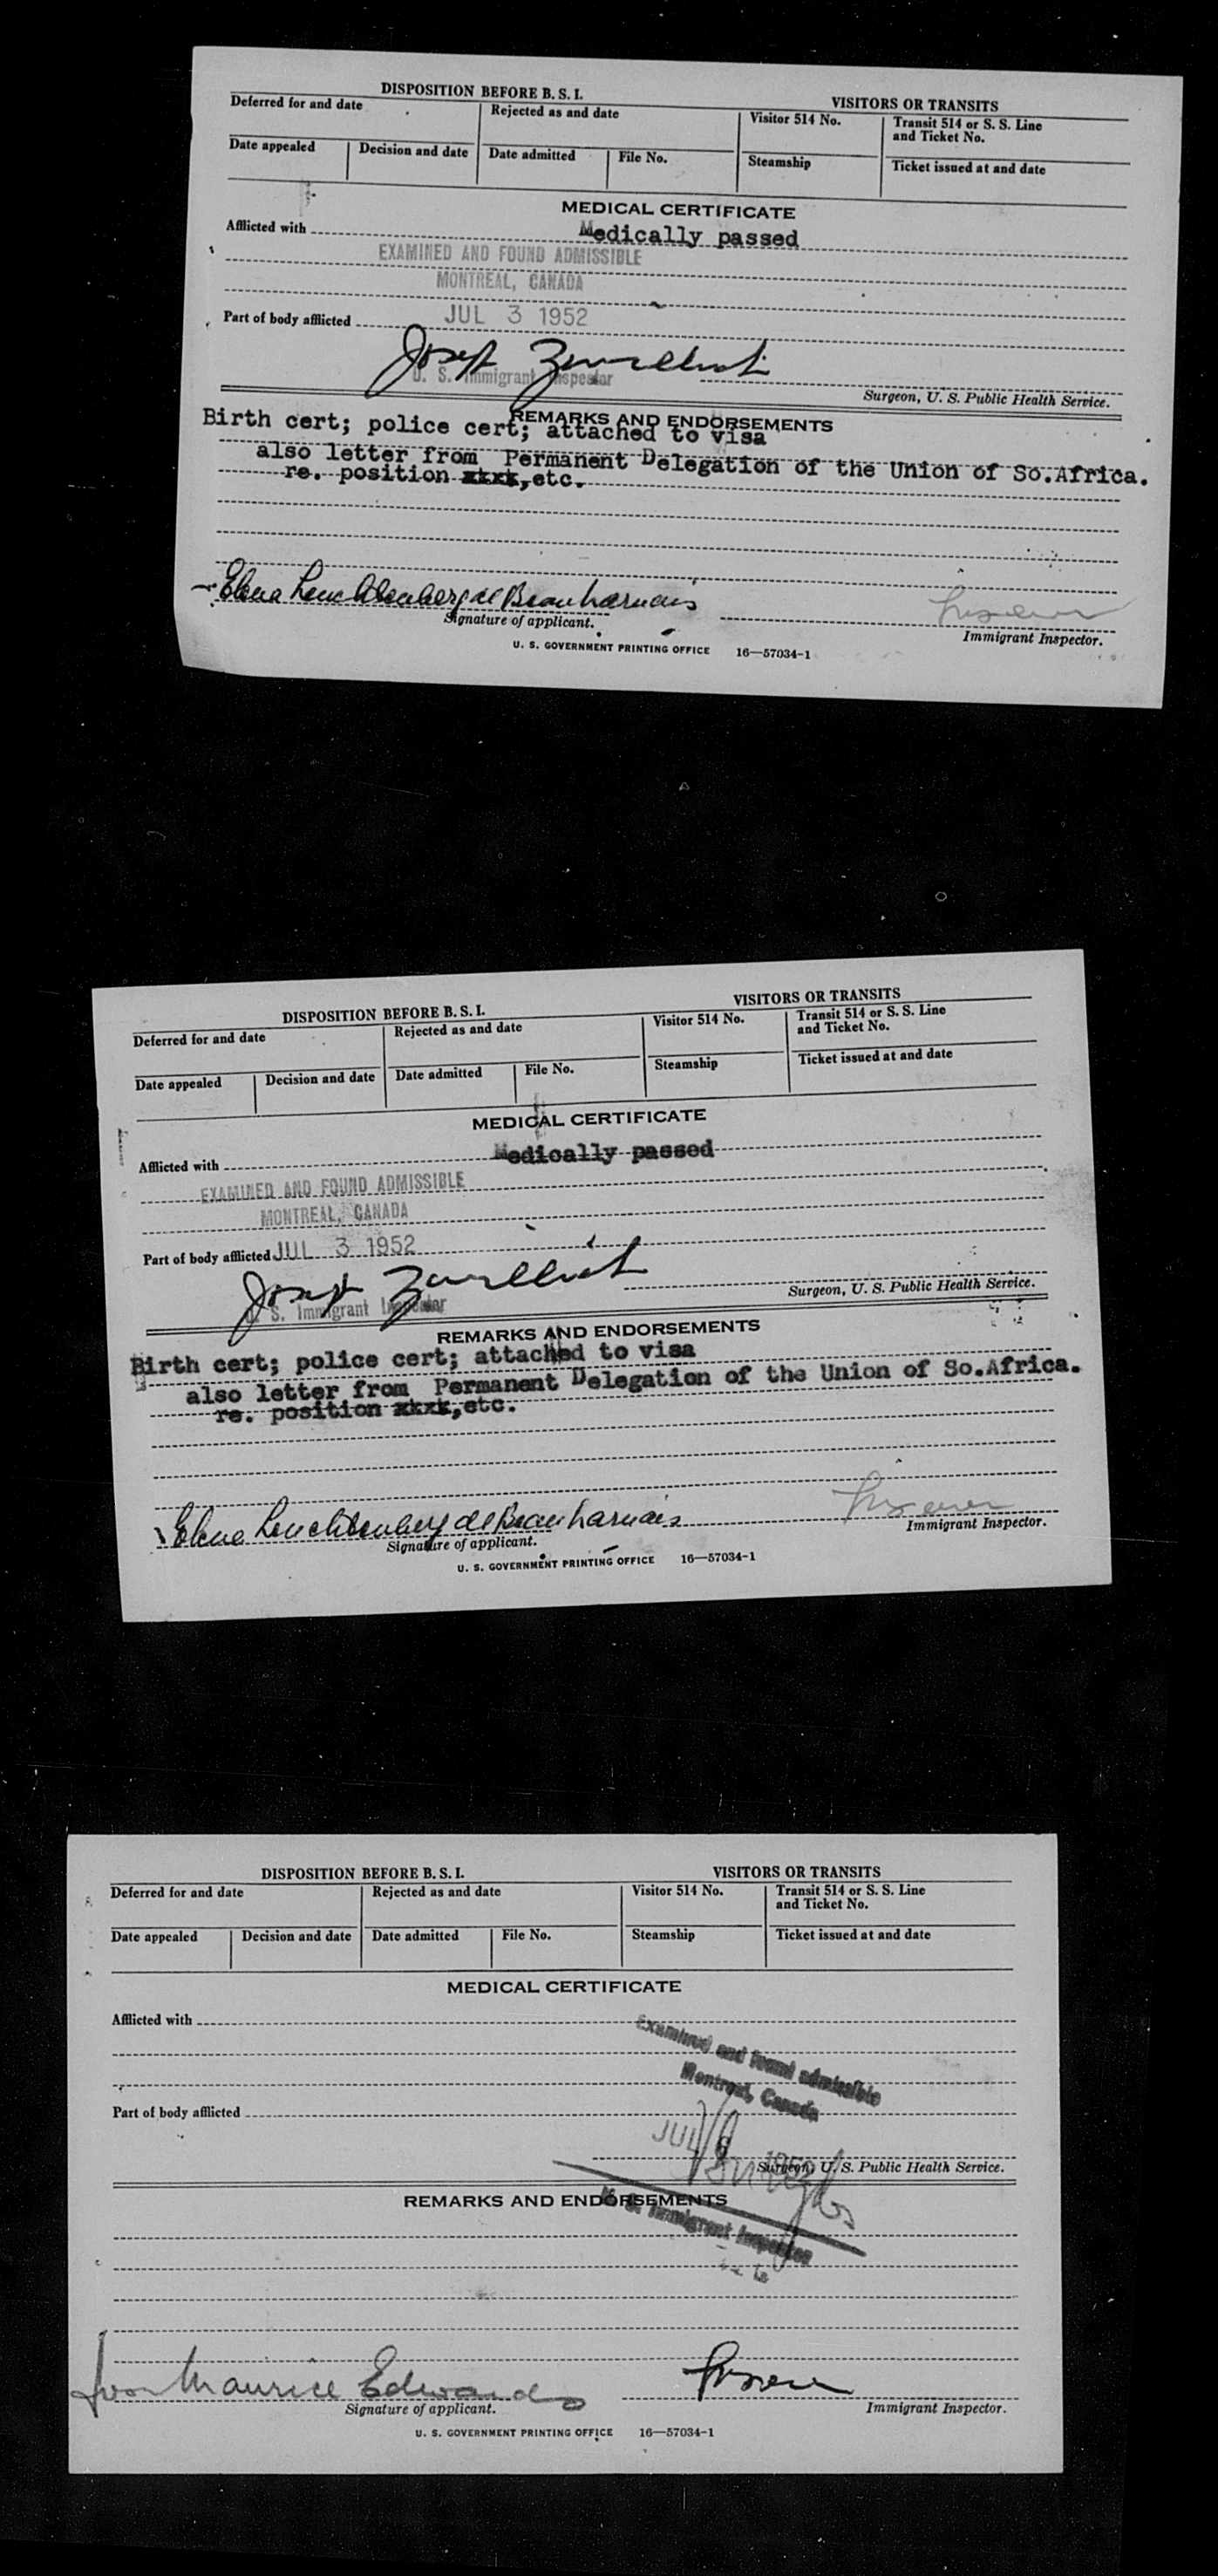 DISPOSITION BEFORE B. S. I.
VISITORS OR TRANSITS
Deferred for and date
Rejected as and date
Visitor 514 No.
Transit 514 or S. S. Line
and Ticket No.
Date appealed
Decision and date
Date admitted
File No.
Steamship
Ticket issued at and date
MEDICAL CERTIFICATE
Afflicted with Medically passed
EXAMINED AND FOUND ADMISSIBLE
MONTREAL, CANADA
Part of body afflicted JUL 3 1952
Joseph
U. S. Immigrant Inspector
Surgeon, U. S. Public Health Service.
REMARKS AND ENDORSEMENTS
Birth cert; police cert; attached to visa
also letter from Permanent Delegation of the Union of So.Africa.
re. position xxxx,etc.
Elena Leuchtenberg de Beauharnais
Signature of applicant.
Immigrant Inspector.
U. S. GOVERNMENT PRINTING OFFICE 16—57034-1
DISPOSITION BEFORE B. S. I.
VISITORS OR TRANSITS
Deferred for and date
Rejected as and date
Visitor 514 No.
Transit 514 or S. S. Line
and Ticket No.
Date appealed
Decision and date
Date admitted
File No.
Steamship
Ticket issued at and date
MEDICAL CERTIFICATE
Afflicted with Medically passed
EXAMINED AND FOUND ADMISSIBLE
MONTREAL, CANADA
Part of body afflicted JUL 3 1952
Joseph
U. S. Immigrant Inspector
Surgeon, U. S. Public Health Service.
REMARKS AND ENDORSEMENTS
Birth cert; police cert; attached to visa
also letter from Permanent Delegation of the Union of So.Africa.
re. position xxxx,etc.
Elena Leuchtenberg de Beauharnais
Signature of applicant.
Immigrant Inspector.
U. S. GOVERNMENT PRINTING OFFICE 16—57034-1
DISPOSITION BEFORE B. S. I.
VISITORS OR TRANSITS
Deferred for and date
Rejected as and date
Visitor 514 No.
Transit 514 or S. S. Line
and Ticket No.
Date appealed
Decision and date
Date admitted
File No.
Steamship
Ticket issued at and date
MEDICAL CERTIFICATE
Afflicted with
Examined and found admissible
Montreal, Canada
Part of body afflicted
JUL
Surgeon, U. S. Public Health Service.
REMARKS AND ENDORSEMENTS
U. S. Immigrant Inspector
Ivor Maurice Edwards
Signature of applicant.
Immigrant Inspector.
U. S. GOVERNMENT PRINTING OFFICE 16—57034-1